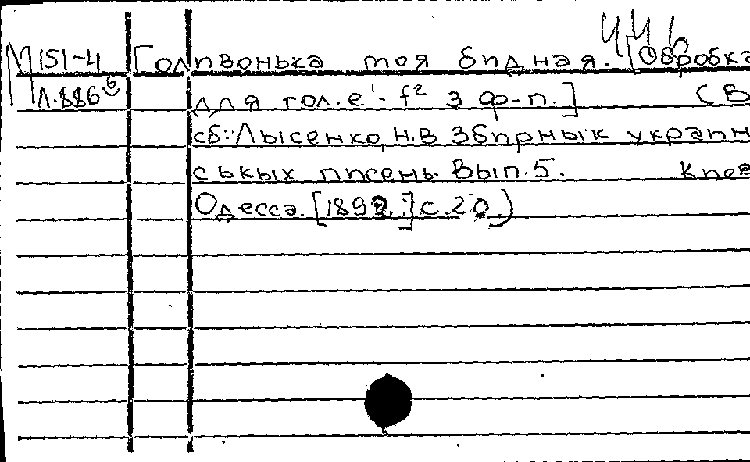 446
М 151-4 Голивонька моя бидная. [Обробка
Л.886 для гол. e'-f² з ф-п.] (В
сб.: Лысенко, Н.В. Збирнык украин
ськых писень. Вып. 5. Киев
Одесса. [1892.] с. 20.)